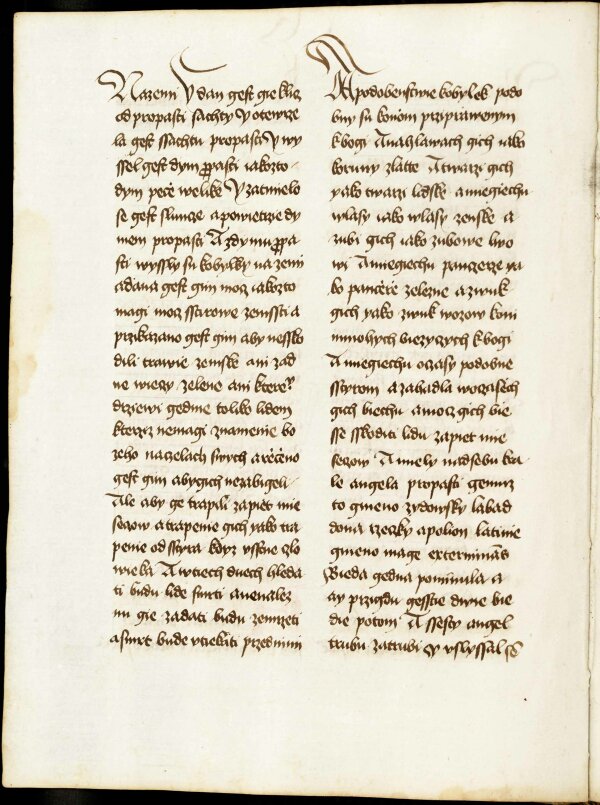 Nazemi Y dan gest gie klicz
od propasti ssachty Y otewrze
la gest ssachtu propasti Y wy
ssel gest dym ꝓpasti iakozto
dym pecze welike Y zatmielo
se gest slunce a powietrzie dy
mem propasti A zdymu ꝓpa
sti wyssly su kobylky na zemi
a dana gest gim mocz iakozto
magi mocz sstirowe zemssti a
przikazano gest gim aby nessko
dili trawie zemske ani zad
ne wieczy zelene ani ktere°
drziewi gedine toliko lidem
kterziz nemagi znamenie bo
zeho naczelach swych a rzeczeno
gest gim abygich nezabigeli
Ale aby ge trapili zapiet mie
siecow a trapenie gich yako tra
penie od sstira kdyz vsscne czlo
wieka A wtiech dnech hleda
ti budu lide smrti a nenalez
nu gie zadati budu zemrzeti
a smrt bude vtiekati przed nimi
A podobenstwie kobylek podo
bny su konom prziprawenym
kbogi A na hlawach gich iako
koruny zlatte A twarzi gich
yako twarzi lidske a miegiechu
wlasy iako wlasy zenske a
zubi gich iako zubowe lwo
wi A miegiechu panczerze ya
ko pancere zelezne a zwuk
gich yako zwuk wozow koni
mnohych biezyczych kbogi
A miegiechu oczasy podobne
sstyrom a zahadla woczasech
gich biechu a mocz gich bie
sse sskoditi lidu zapiet mie
siecow A miely nad sebu kra
le angela propasti gemuz
to gmeno zydowsky labad
dona rzeczky apolion latinie
gmeno mage exterminans
Bieda gedna pominula a
ay przigdu gesstie dwie bie
die potom A ssesty angel
trubu zatrubi Y vslyssal sē